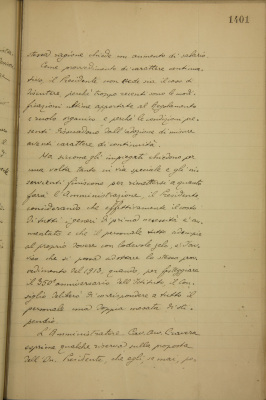 1401
stessa ragione chiede un aumento di salario.
Come provvedimento di carattere continua-
tivo, il Presidente non vede ora il caso di
discutere, perchè troppo recenti sono le modi-
ficazioni ultime apportate al Regolamento
e ruolo organico e perchè le condizioni pre-
senti dall'adozione di misure
aventi carattere di continuità.
Ma siccome gli impiegati chiedono per
una volta tanto in via speciale e gli
finiscono per rimettersi a quanto
farà l'Amministrazione, il Presidente
considerando che effettivamente il costo
di tutti i generi di prima necessità è au-
mentato e che il personale tutto adempie
al proprio dovere con lodevole zelo,
che si possa adottare lo stesso prov-
vedimento del 1913, quando, per festeggiare
il 350° anniversario dell'Istituto il Con-
siglio deliberò di corrispondere a tutto il
personale una doppia mesata di sti-
pendio.
L'Amministratore Cav. Avv.
esprime qualche riserva sulla proposta
dell'On. Presidente, che egli, a mar, pa-